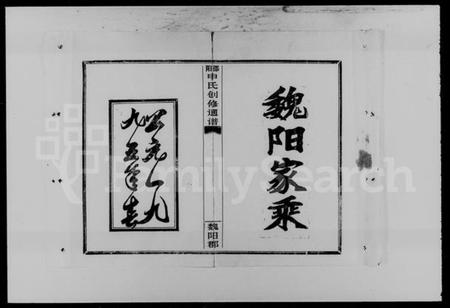 魏阳家乘
邵阳申氏创修通谱
魏阳郡
公元一九
九五年春
FamilySearch